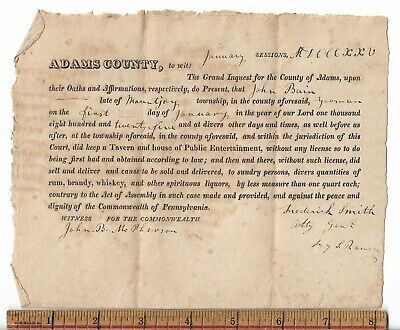 January, SESSIONS, MDCCCXXV
ADAMS COUNTY, to wit:
The Grand Inquest for the County of Adams, upon
their Oaths and Affirmations, respectively, do Present, that John Bain
late of township, in the county aforesaid, Yeoman
on the first day of January, in the year of our Lord one thousand
eight hundred and twenty five and at divers other days and times, as well before as
after, at the township aforesaid, in the county aforesaid, and within the jurisdiction of this
Court, did keep a Tavern and house of Public Entertainment, without any license so to do
being first had and obtained according to law; and then and there, without such license, did
sell and deliver and cause to be sold and delivered, to sundry persons, divers quantities of
rum, brandy, whiskey, and other spirituous liquors, by less measure than one quart each;
contrary to the Act of Assembly in such case made and provided, and against the peace and
dignity of the Commonwealth of Pennsylvania.
Frederick Smith
WITNESS FOR THE COMMONWEALTH
John B. McPherson
1 2 3 4 5 6 7 8